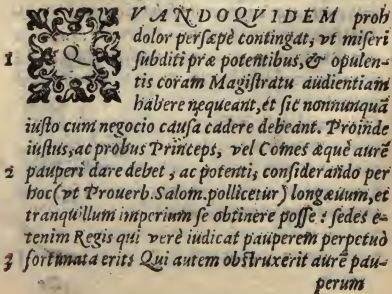 QVANDOQVIDEM proh
dolor persæpè contingat, vt miseri
1 subditi præ potentibus, & opulen-
tis coram Magistratu audientiam
habere nequeant, et sic nonnunquā
iusto cum negocio causa cadere debeant. Proinde
iustus, ac probus Princeps, vel Comes æquè aurē
2 pauperi dare debet, ac potenti; considerando per
hoc (vt Prouerb. Salom. pollicetur) longæuum, et
tranquillum imperium se obtinere posse: sedes e-
tenim Regis qui verè iudicat pauperem perpetuò
3 fortunata erit: Qui autem obstruxerit aurē pau-
perum